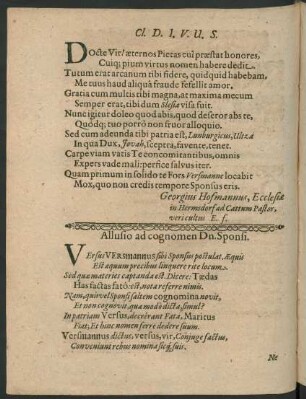 Cl. D. I. V. U. S.
Docte Vir! æternos Pietas cui præstat honores,
Cuiq; pium virtus nomen habere dedit.
Tutum erat arcanum tibi fidere, quidquid habebam,
Metuus haud aliquâ fraude fefellit amor.
Gratia cum multis tibi magna, at maxima mecum
Semper erat, tibi dum Slesia visa fuit.
Nunc igitur doleo quod abis, quod deseror abs te,
Quódq; tuo porrò non fruor alloquio.
Sed cum adeunda tibi patria est, Lunburgicus, Ultzæ
In qua Dux, Jovah, sceptra, favente, tenet.
Carpe viam vatis Te concomitantibus, omnis
Expers vade mali: perfice salvus iter.
Quam primum in solido te Fors Versmanne locabit
Mox, quo non credis tempore Sponsus eris.
Georgius Hofmannus, Ecclesiæ
in Hermsdorf ad Cattum Pastor,
vericultus E. f.
Allusio ad cognomen Dn. Sponsi.
VErsus VERsmannus sibi Sponsus postulat. Æquis
Est æquum precibus linquere rite locum.
Sed quæ materies captanda est. Dicere: Tædas
Has factas fatò: est notâ referre nimis.
Nam, quis vel Sponsi saltem cognomina novit,
Et non cognovit quæ modò dicta, simul?
In patriam Versus, decrérant Fata, Maritus
Fiat, Et hinc nomen ferre dedere suum.
Versmannus dictus, versus, vir, Conjuge factus,
Conveniunt rebus nomina sæpè suis.
Ne